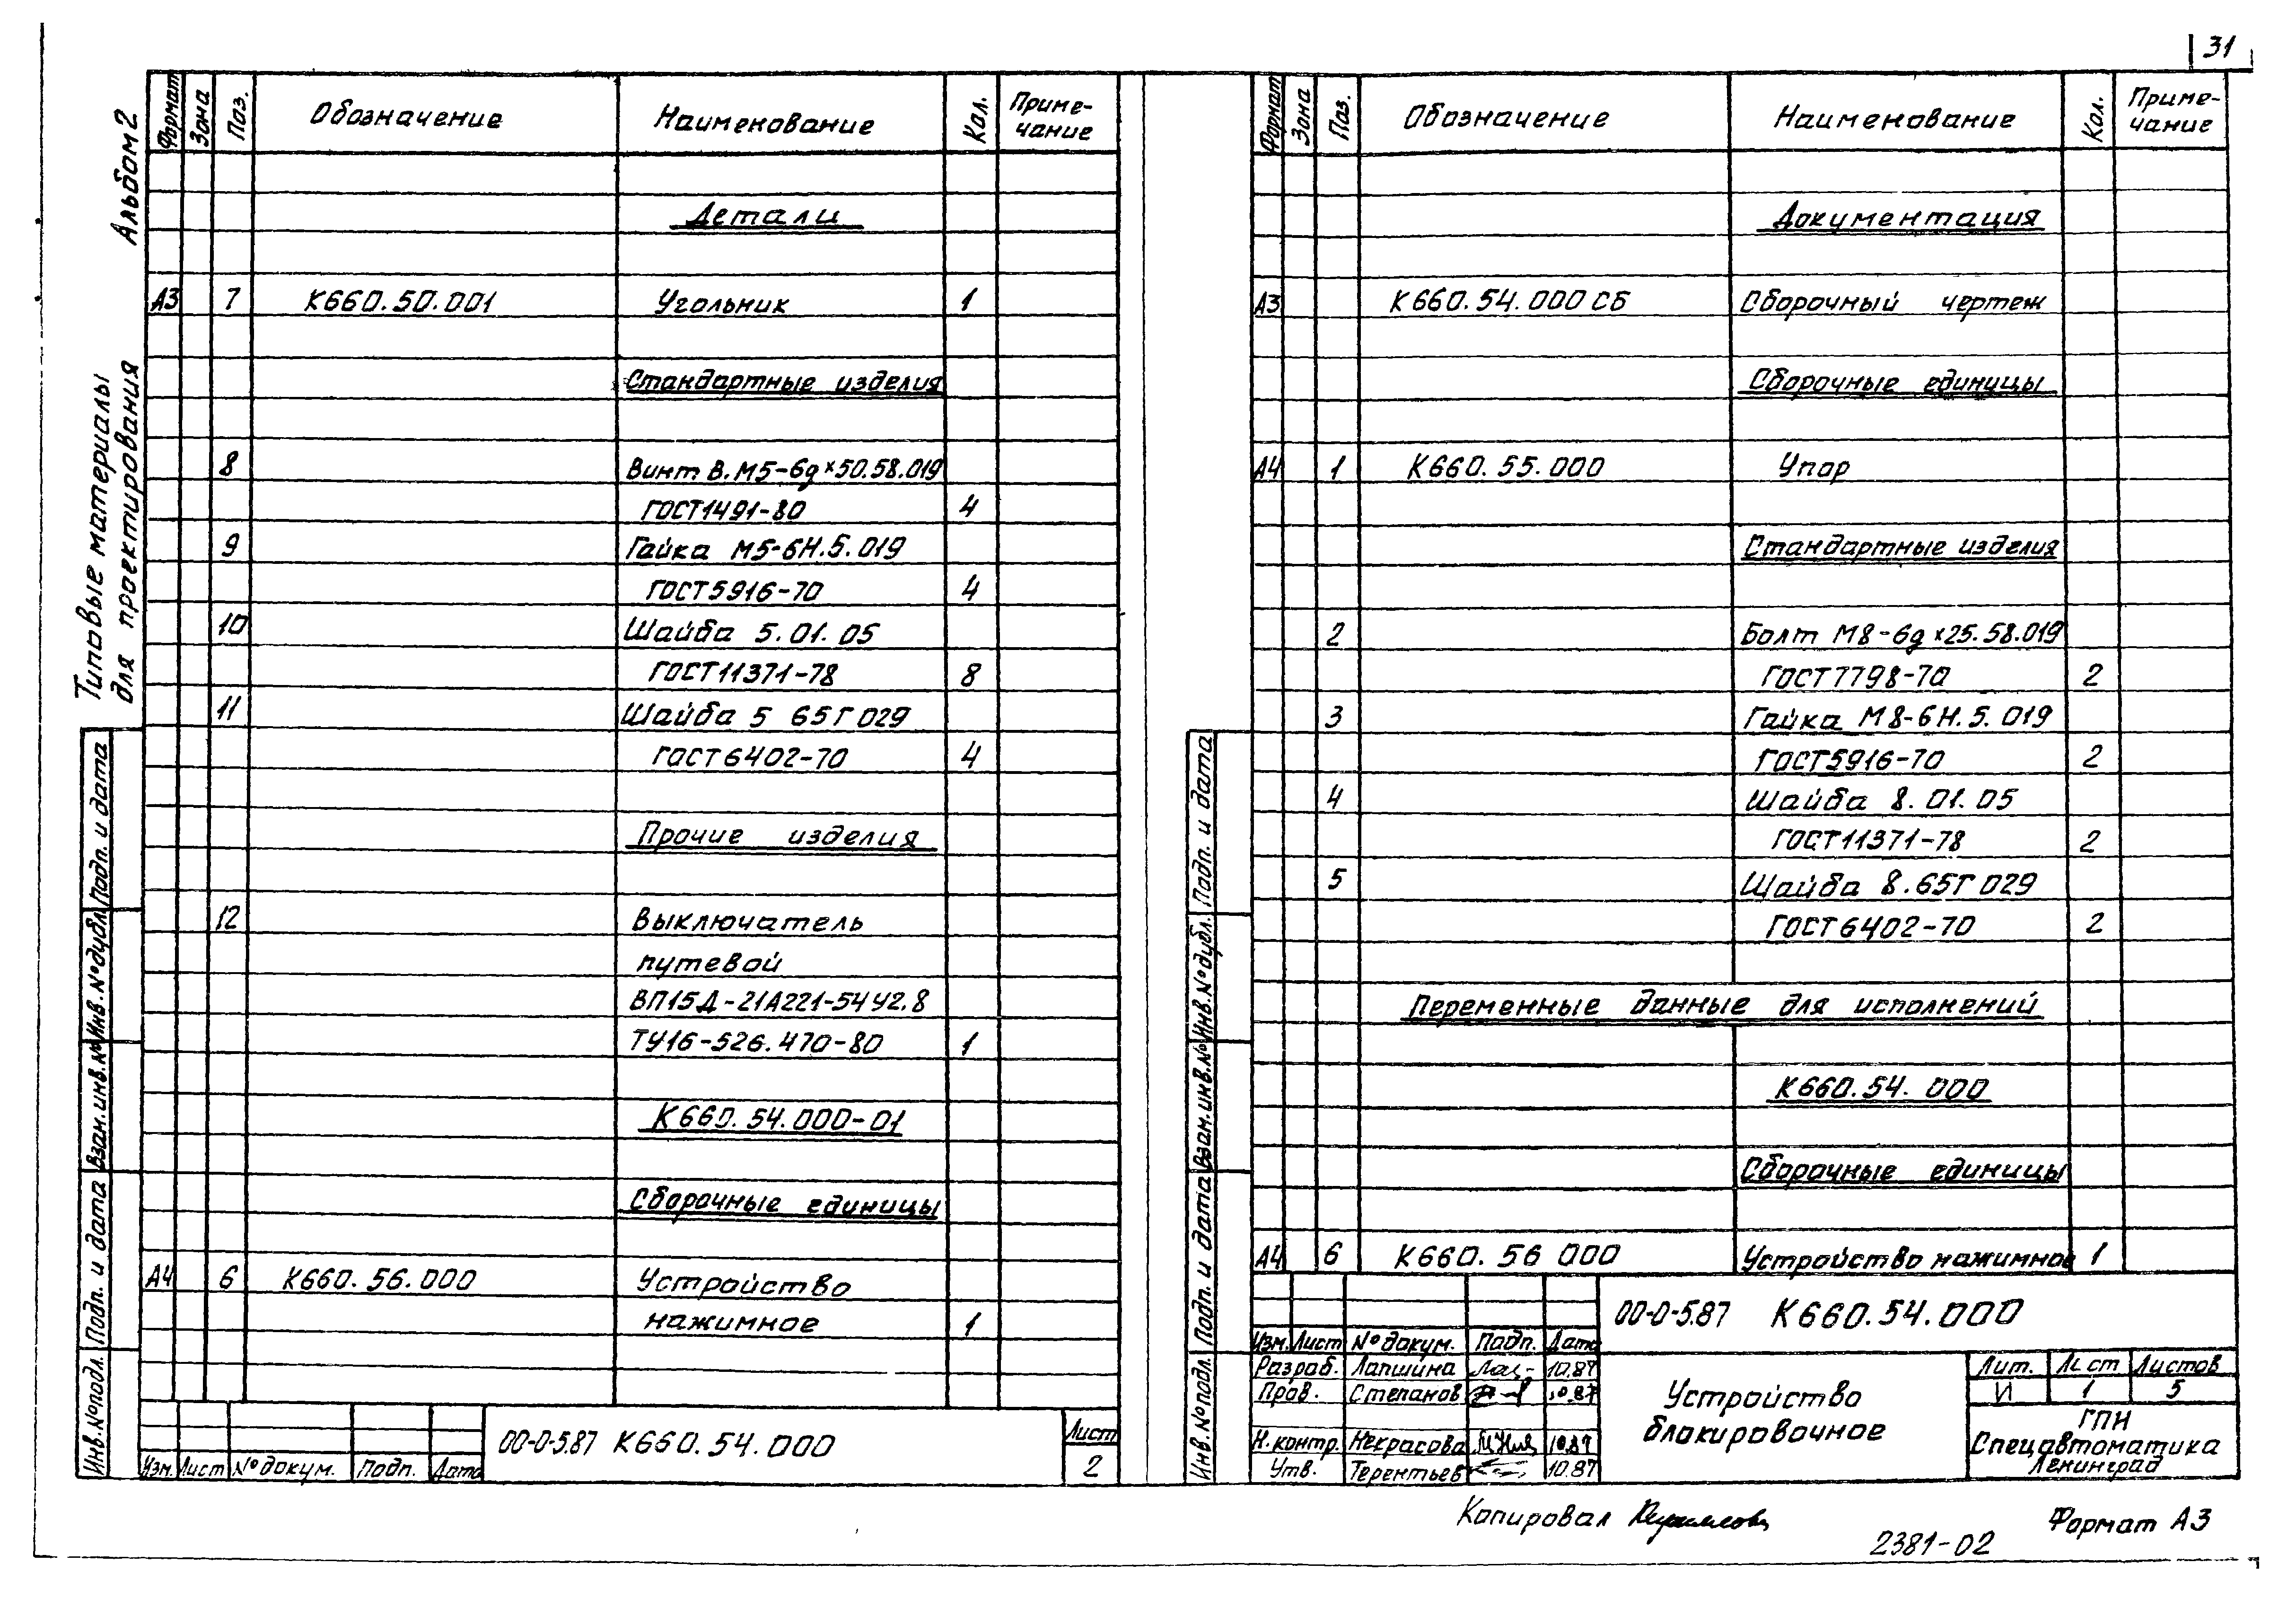 31
Альбом 2
Типовые материалы
для проектирования
Формат Зона Поз. Обозначение Наименование Кол. Приме-
чание
Детали
А3 7 К660.50.001 Угольник 1
Стандартные изделия
8 Винт В.М5-6g×50.58.019
ГОСТ1491-80 4
9 Гайка М5-6Н.5.019
ГОСТ5916-70 4
10 Шайба 5.01.05
ГОСТ11371-78 8
11 Шайба 5 65Г 029
ГОСТ6402-70 4
Прочие изделия
12 Выключатель
путевой
ВП15Д-21А221-54У2.8
ТУ16-526.470-80 1
К660.54.000-01
Сборочные единицы
А4 6 К660.56.000 Устройство
нажимное 1
Подп. и дата
Инв.№дубл.
Взам.инв.№
Подп. и дата
Инв.№подл.
Изм. Лист №докум. Подп. Дата
00-0-5.87 К660.54.000
Лист
2
Формат Зона Поз. Обозначение Наименование Кол. Приме-
чание
Документация
А3 К660.54.000СБ Сборочный чертеж
Сборочные единицы
А4 1 К660.55.000 Упор
Стандартные изделия
2 Болт М8-6g×25.58.019
ГОСТ7798-70 2
3 Гайка М8-6Н.5.019
ГОСТ5916-70 2
4 Шайба 8.01.05
ГОСТ11371-78 2
5 Шайба 8.65Г 029
ГОСТ6402-70 2
Переменные данные для исполнений
К660.54.000
Сборочные единицы
А4 6 К660.56 000 Устройство нажимное 1
Подп. и дата
Инв.№дубл.
Взам.инв.№
Подп. и дата
Инв.№подл.
00-0-5.87 К660.54.000
Изм. Лист №докум. Подп. Дата
Разраб. Лапшина 10.87
Пров. Степанов 10.87
Н.контр. Некрасова 10.87
Утв. Терентьев 10.87
Устройство
блокировочное
Лит. Лист Листов
И 1 5
ГПИ
Спецавтоматика
Ленинград
Копировал
2381-02
Формат А3